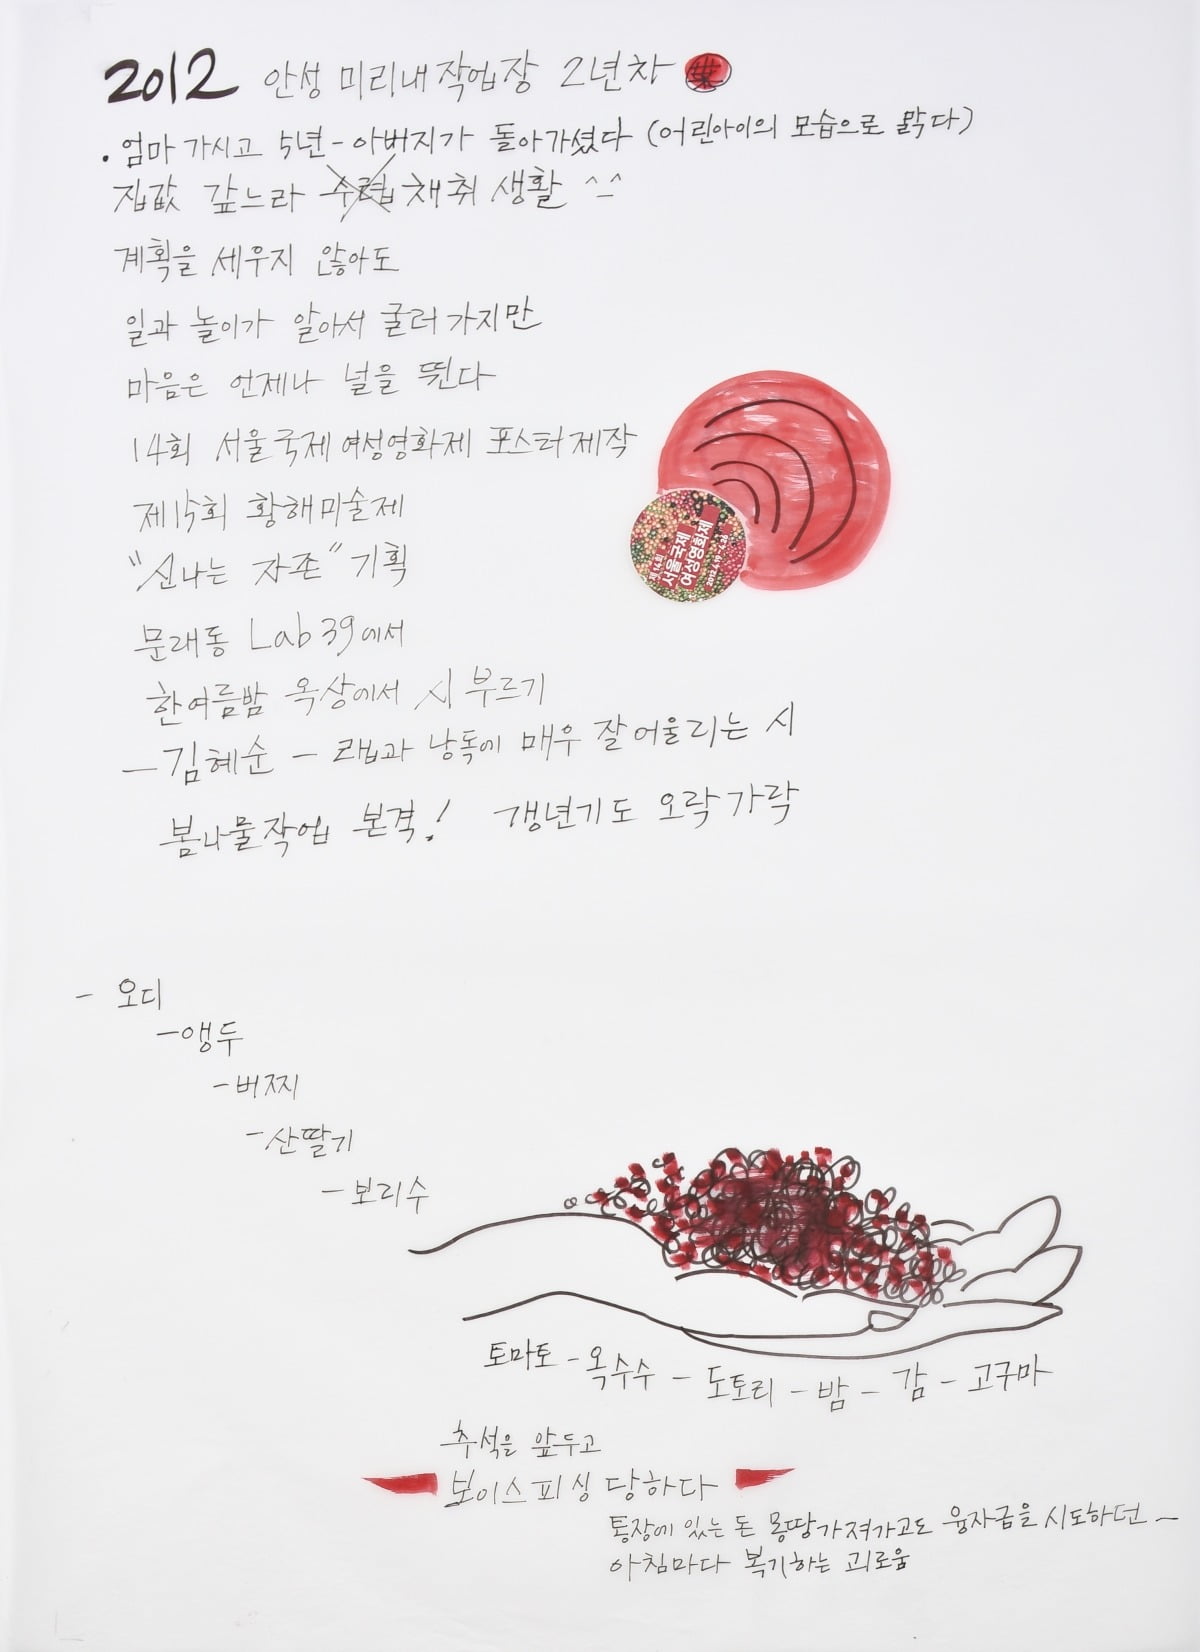 2012 안성 미리내 작업장 2년차
• 엄마 가시고 5년 - 아버지가 돌아가셨다 (어린아이의 모습으로 맑다)
집값 갚느라 수렵 채취 생활 ^_^
계획을 세우지 않아도
일과 놀이가 알아서 굴러 가지만
마음은 언제나 널을 뛴다
14회 서울국제여성영화제 포스터 제작
제15회 황해미술제
"신나는 자존" 기획
제14회
서울국제
여성영화제
문래동 Lab39에서
한여름밤 옥상에서 시 부르기
— 김혜순 — 랩과 낭독에 매우 잘 어울리는 시
봄나물작업 본격! 갱년기도 오락가락
- 오디
- 앵두
- 버찌
- 산딸기
- 보리수
토마토 - 옥수수 - 도토리 - 밤 - 감 - 고구마
추석을 앞두고
보이스피싱 당하다
통장에 있는 돈 몽땅가져가고도 융자금을 시도하던 —
아침마다 복기하는 괴로움